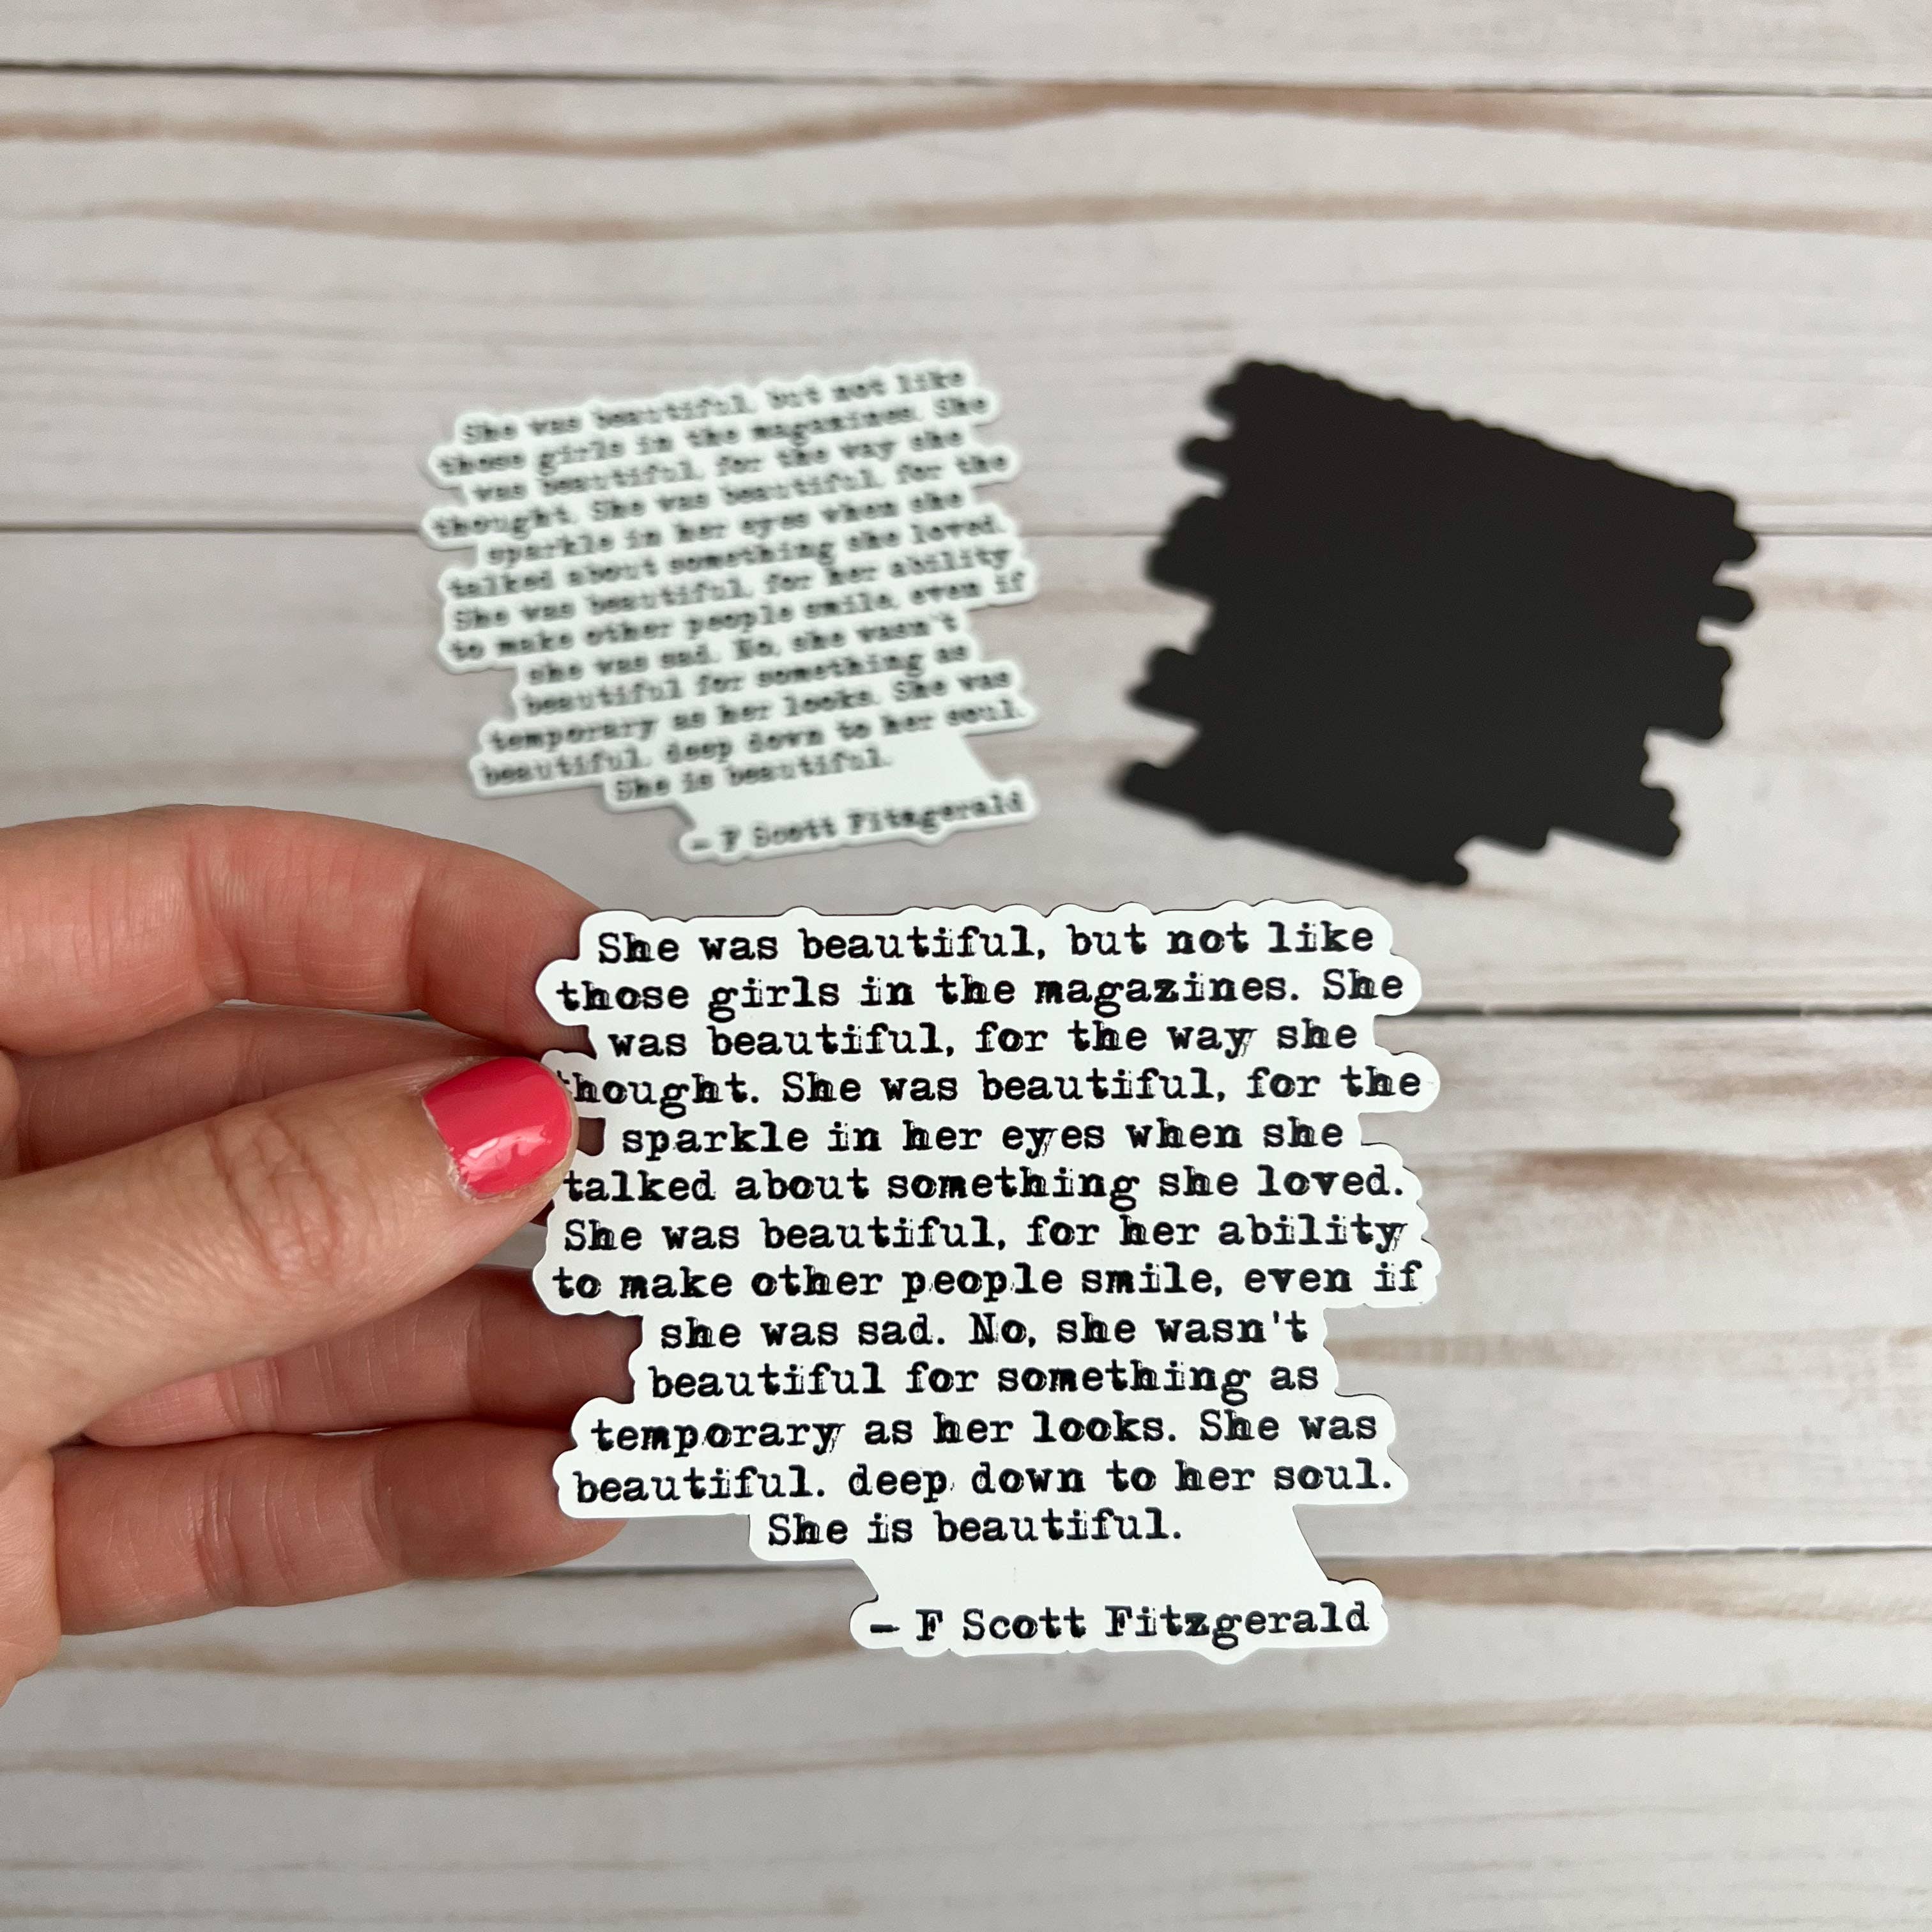 She was beautiful, but not like
those girls in the magazines. She
was beautiful, for the way she
thought. She was beautiful, for the
sparkle in her eyes when she
talked about something she loved.
She was beautiful, for her ability
to make other people smile, even if
she was sad. No, she wasn't
beautiful for something as
temporary as her looks. She was
beautiful. deep down to her soul.
She is beautiful.
- F Scott Fitzgerald
She was beautiful, but not like
those girls in the magazines. She
was beautiful, for the way she
thought. She was beautiful, for the
sparkle in her eyes when she
talked about something she loved.
She was beautiful, for her ability
to make other people smile, even if
she was sad. No, she wasn't
beautiful for something as
temporary as her looks. She was
beautiful. deep down to her soul.
She is beautiful.
— F Scott Fitzgerald